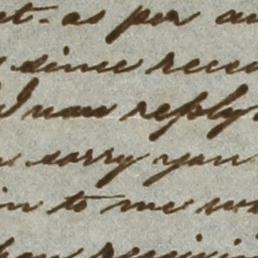 t. as per au
since recei
I now reply
sorry you
in to me wa